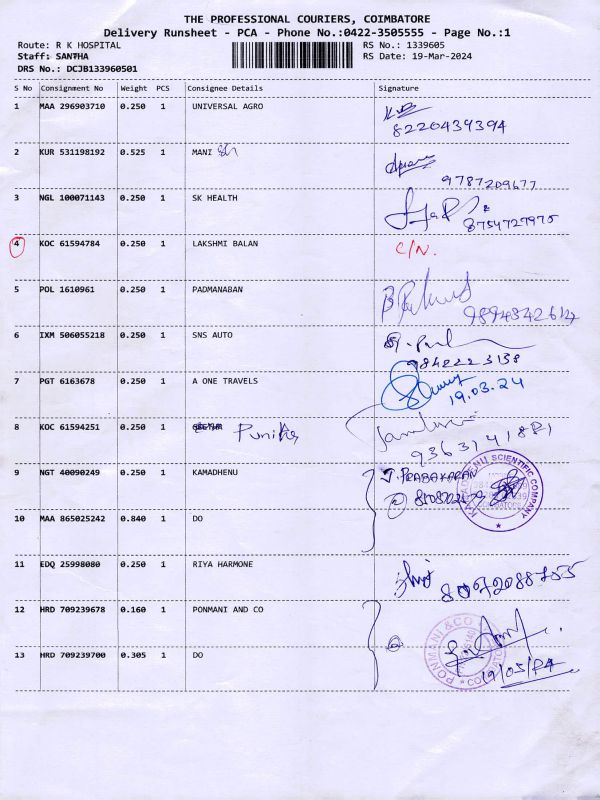 THE PROFESSIONAL COURIERS, COIMBATORE
Delivery Runsheet - PCA - Phone No.:0422-3505555 - Page No.:1
Route: R K HOSPITAL RS No.: 1339605
Staff: SANTHA RS Date: 19-Mar-2024
DRS No.: DCJB133960501
S No Consignment No Weight PCS Consignee Details Signature
1 MAA 296903710 0.250 1 UNIVERSAL AGRO
8220439394
2 KUR 531198192 0.525 1 MANI
9787209677
3 NGL 100071143 0.250 1 SK HEALTH
8754727975
4 KOC 61594784 0.250 1 LAKSHMI BALAN C/N.
5 POL 1610961 0.250 1 PADMANABAN
9894342614
6 IXM 506055218 0.250 1 SNS AUTO
9842223138
7 PGT 6163678 0.250 1 A ONE TRAVELS
19.03.24
8 KOC 61594251 0.250 1
9 NGT 40090249 0.250 1 KAMADHENU J. PRABAKARAN
KAMADHENU SCIENTIFIC COMPANY
10 MAA 865025242 0.840 1 DO
11 EDQ 25998080 0.250 1 RIYA HARMONE
12 HRD 709239678 0.160 1 PONMANI AND CO
PONMANI & CO
13 HRD 709239700 0.305 1 DO